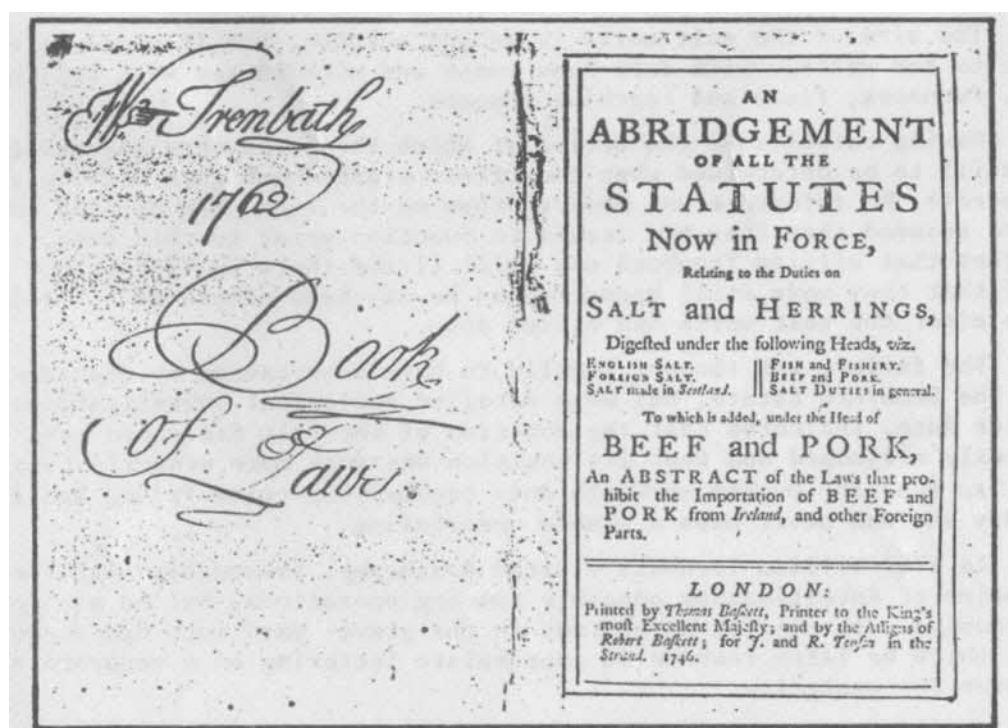 Wm Trenbath
1762
Book
of Laws
AN
ABRIDGEMENT
OF ALL THE
STATUTES
Now in FORCE,
Relating to the Duties on
SALT and HERRINGS,
Digeſted under the following Heads, viz.
ENGLISH SALT.
FOREIGN SALT.
SALT made in Scotland.
FISH and FISHERY.
BEEF and PORK.
SALT DUTIES in general.
To which is added, under the Head of
BEEF and PORK,
An ABSTRACT of the Laws that pro-
hibit the Importation of BEEF and
PORK from Ireland, and other Foreign
Parts.
LONDON:
Printed by Thomas Baſkett, Printer to the King's
moſt Excellent Majeſty; and by the Aſſigns of
Robert Baſkett; for J. and R. in the
Strand. 1746.